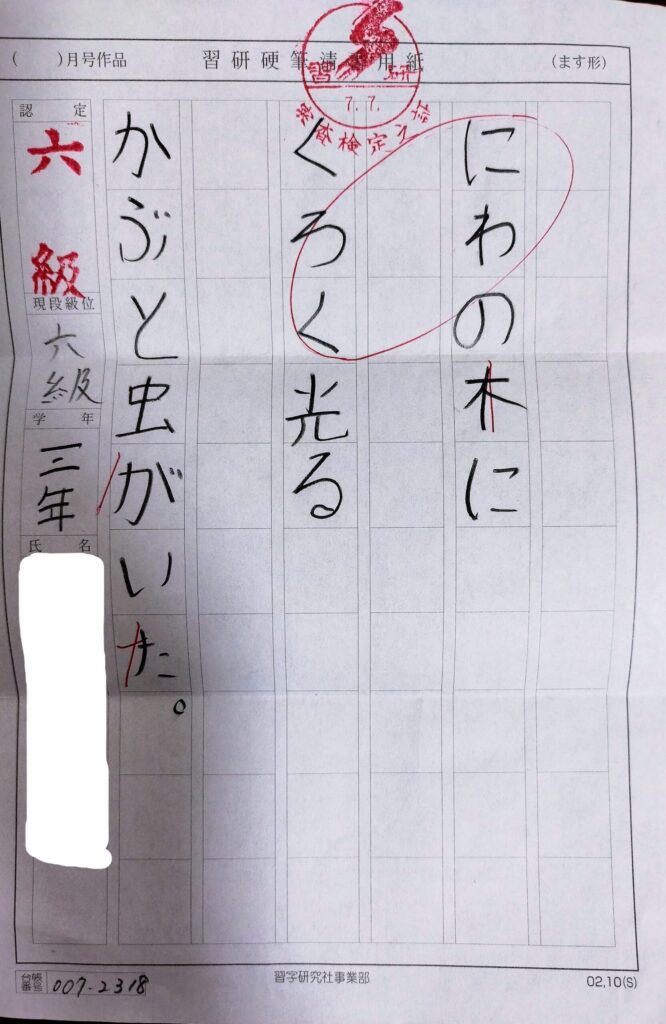 ( )月号作品 習研硬筆清書用紙 (ます形)
習 研
7.7.
審査検定之証
にわの木に
くろく光る
かぶと虫がいた。
認定
六級
現段級位
六級
学年
三年
氏名
台帳番号 007-2318
習字研究社事業部
02,10(S)